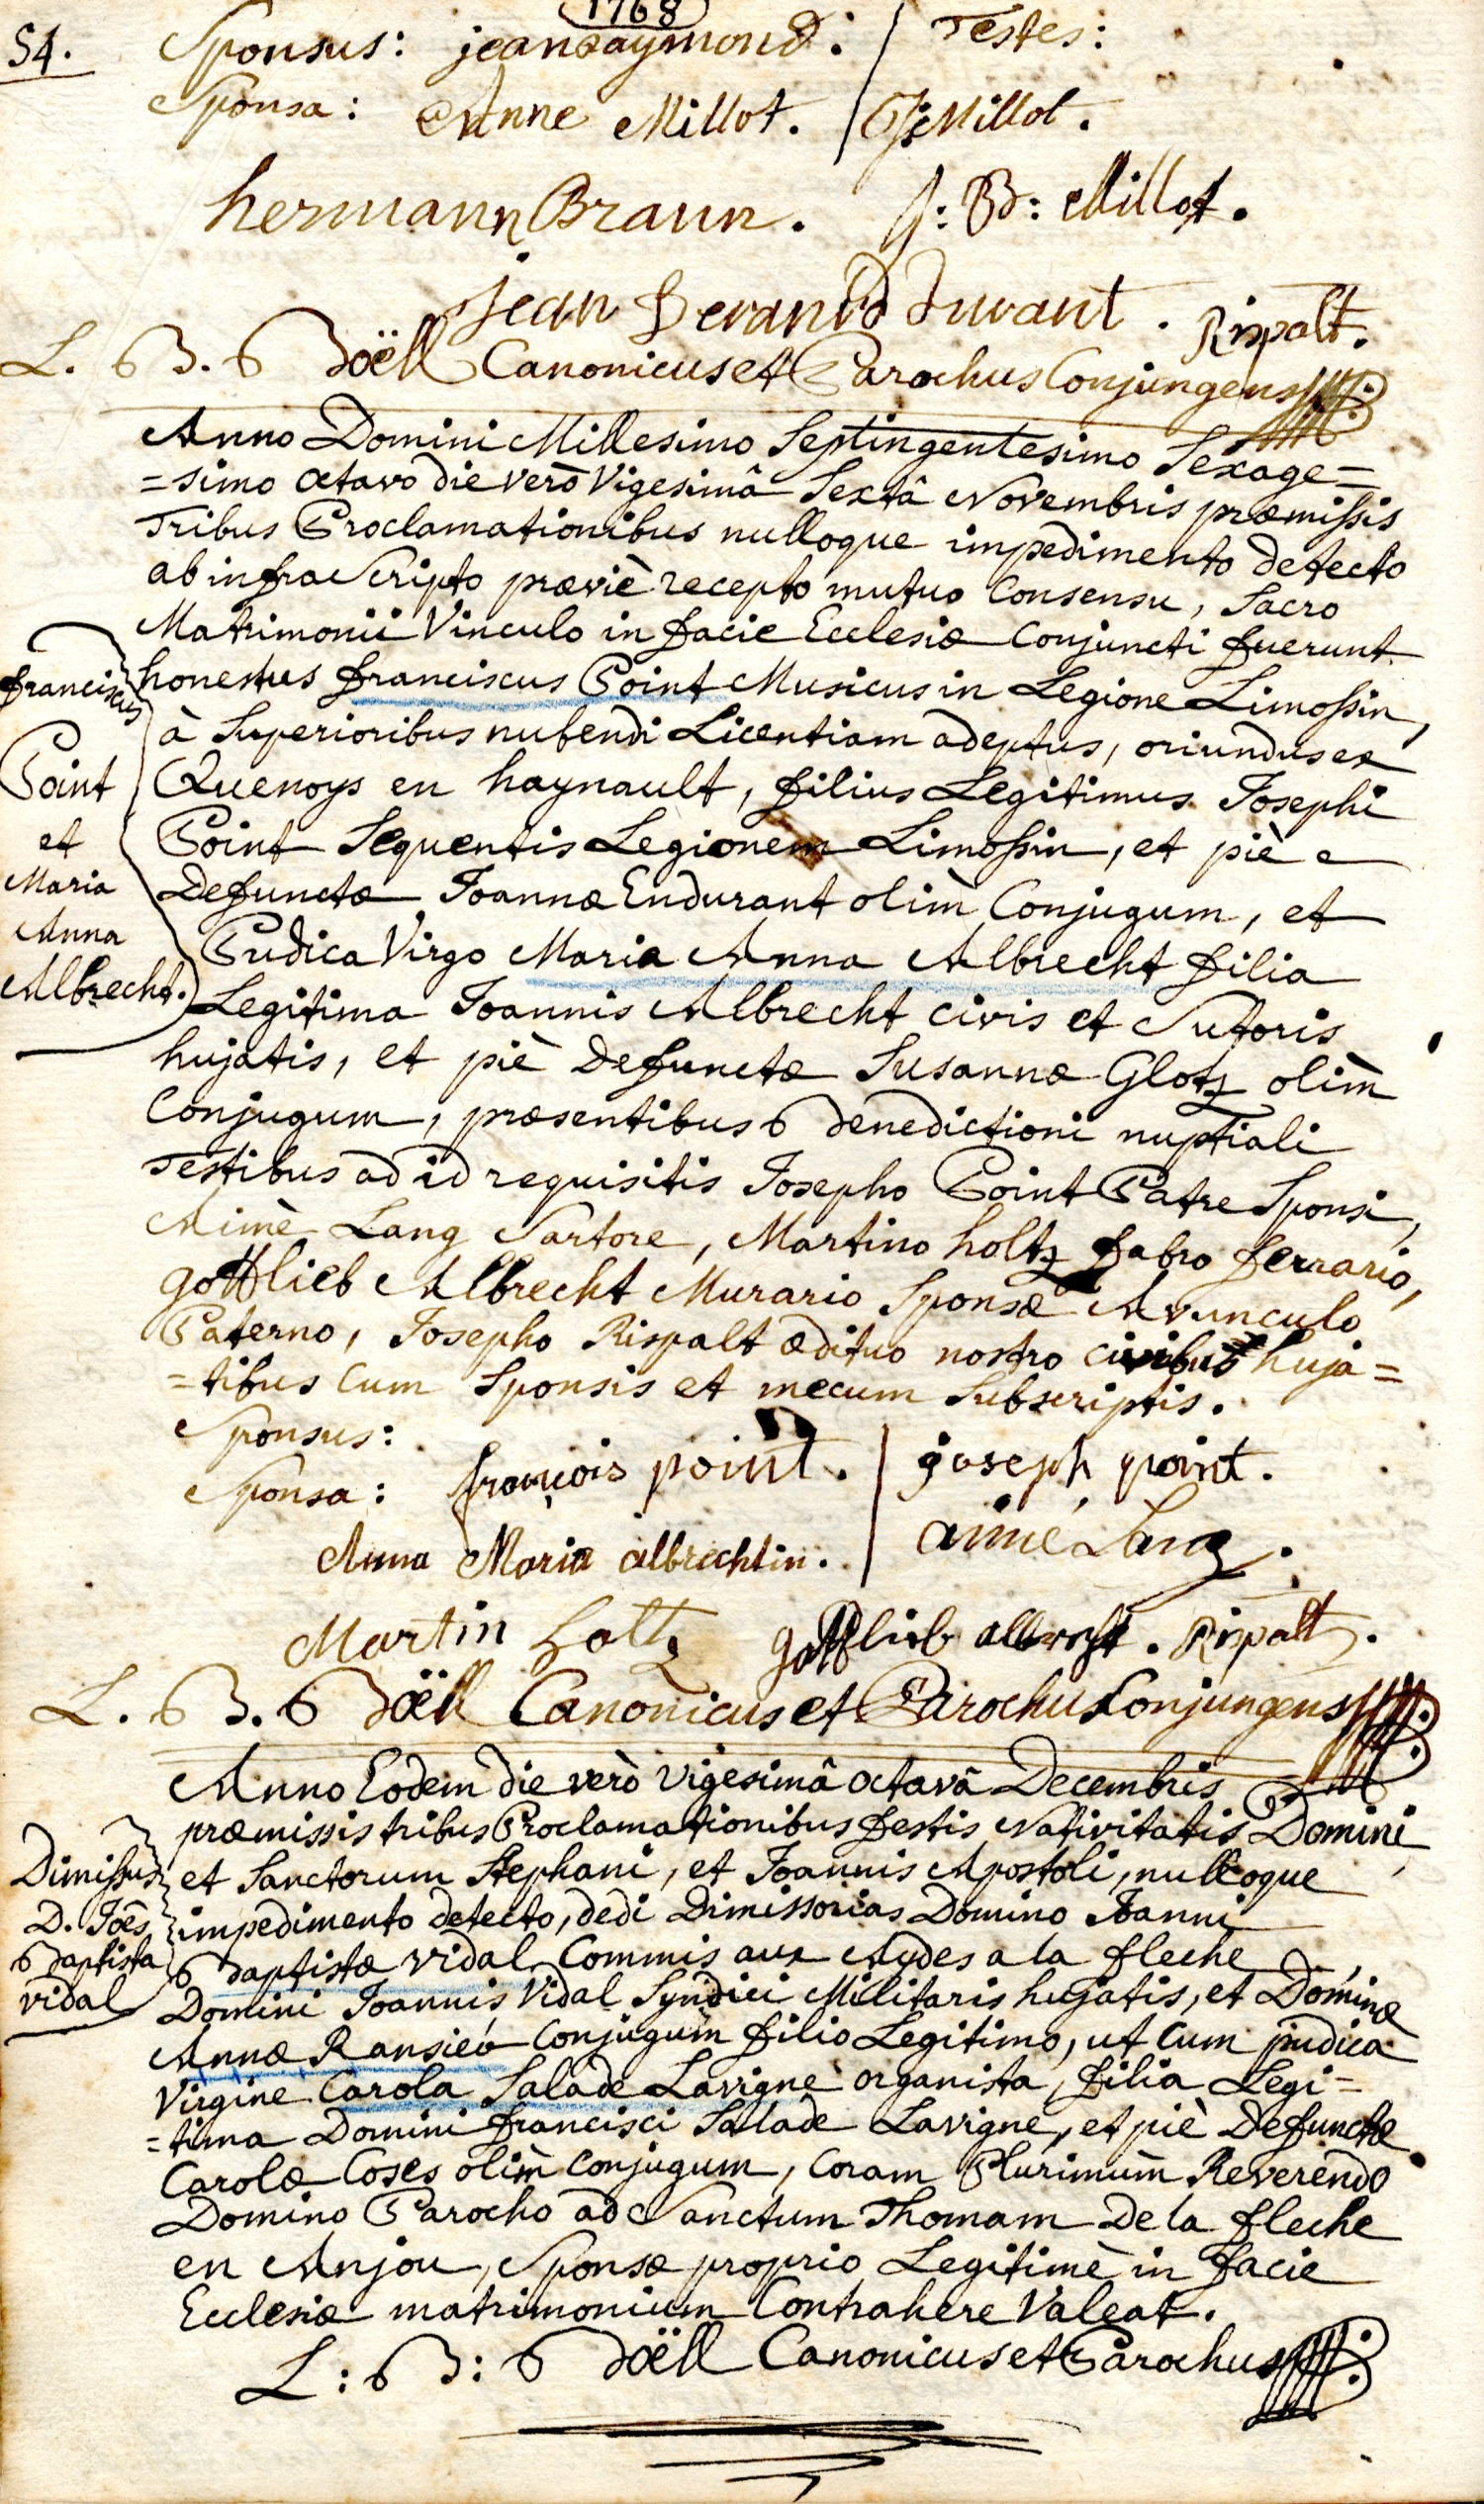 1768
54.
Sponsus: jean Raymond: Testes:
Sponsa: Anne Millot. J: Millot.
hermann Braun. J: B: Millot.
jean durant. Rispalt.
L. B. Boëll Canonicus et Parochus Conjungens
Anno Domini Millesimo Septingentesimo Sexage=
=simo octavo die verò Vigesimâ Sextâ Novembris præmissis
Tribus Proclamationibus nulloque impedimento detecto
ab infra Scripto præviè recepto mutuo Consensu, Sacro
Matrimonii Vinculo in facie Ecclesiæ Conjuncti fuerunt
honestus franciscus Point Musicus in Legione Limossin,
à Superioribus nubendi Licentiam adeptus, oriundus ex
Quenoys en haynault, filius Legitimus Josephi
Point Sequentis Legionem Limossin, et piè
Defunctæ Joannæ Endurant olim Conjugum, et
Pudica Virgo Maria Anna Albrecht filia
Legitima Joannis Albrecht civis et Sutoris
hujatis, et piè Defunctæ Susannæ Glotz olim
Conjugum, præsentibus Benedictioni nuptiali
Testibus ad id requisitis Josepho Point Patre Sponsi,
Aimè Lang Sartore, Martino holtz fabro ferrario,
gottlieb Albrecht Murario Sponsæ Avunculo
Paterno, Josepho Rispalt ædituo nostro civibus huja=
=tibus Cum Sponsis et mecum Subscriptis.
franciscus
Point
et
Maria
Anna
Albrecht.
Sponsus:
françois point. joseph point.
Sponsa:
Anna Maria albrechtin. aimé Lang.
Martin holtz gottlieb albrecht. Rispalt.
L. B. Boëll Canonicus et Parochus Conjungens
Anno Eodem die verò vigesimâ octavâ Decembris
præmissis tribus Proclamationibus festis Nativitatis Domini,
et Sanctorum Stephani, et Joannis Apostoli, nulloque
impedimento detecto, dedi Dimissorias Domino Joanni
Baptistæ vidal Commis aux Aydes a la fleche,
Domini Joannis Vidal Syndici Militaris hujatis, et Dominæ
Annæ Ransieu Conjugum filio Legitimo, ut Cum pudica
Virgine Carola Salade Lavigne organista, filia Legi=
=tima Domini francisci Salade Lavigne, et piè Defunctæ
Carolæ Coses olim Conjugum, Coram Plurimùm Reverendo
Domino Parocho ad Sanctum Thomam De la fleche
en Anjou, Sponsæ proprio Legitimè in facie
Ecclesiæ matrimonium Contrahere Valeat.
Dimissus
D. Joês
Baptista
vidal
L: B: Boëll Canonicus et Parochus